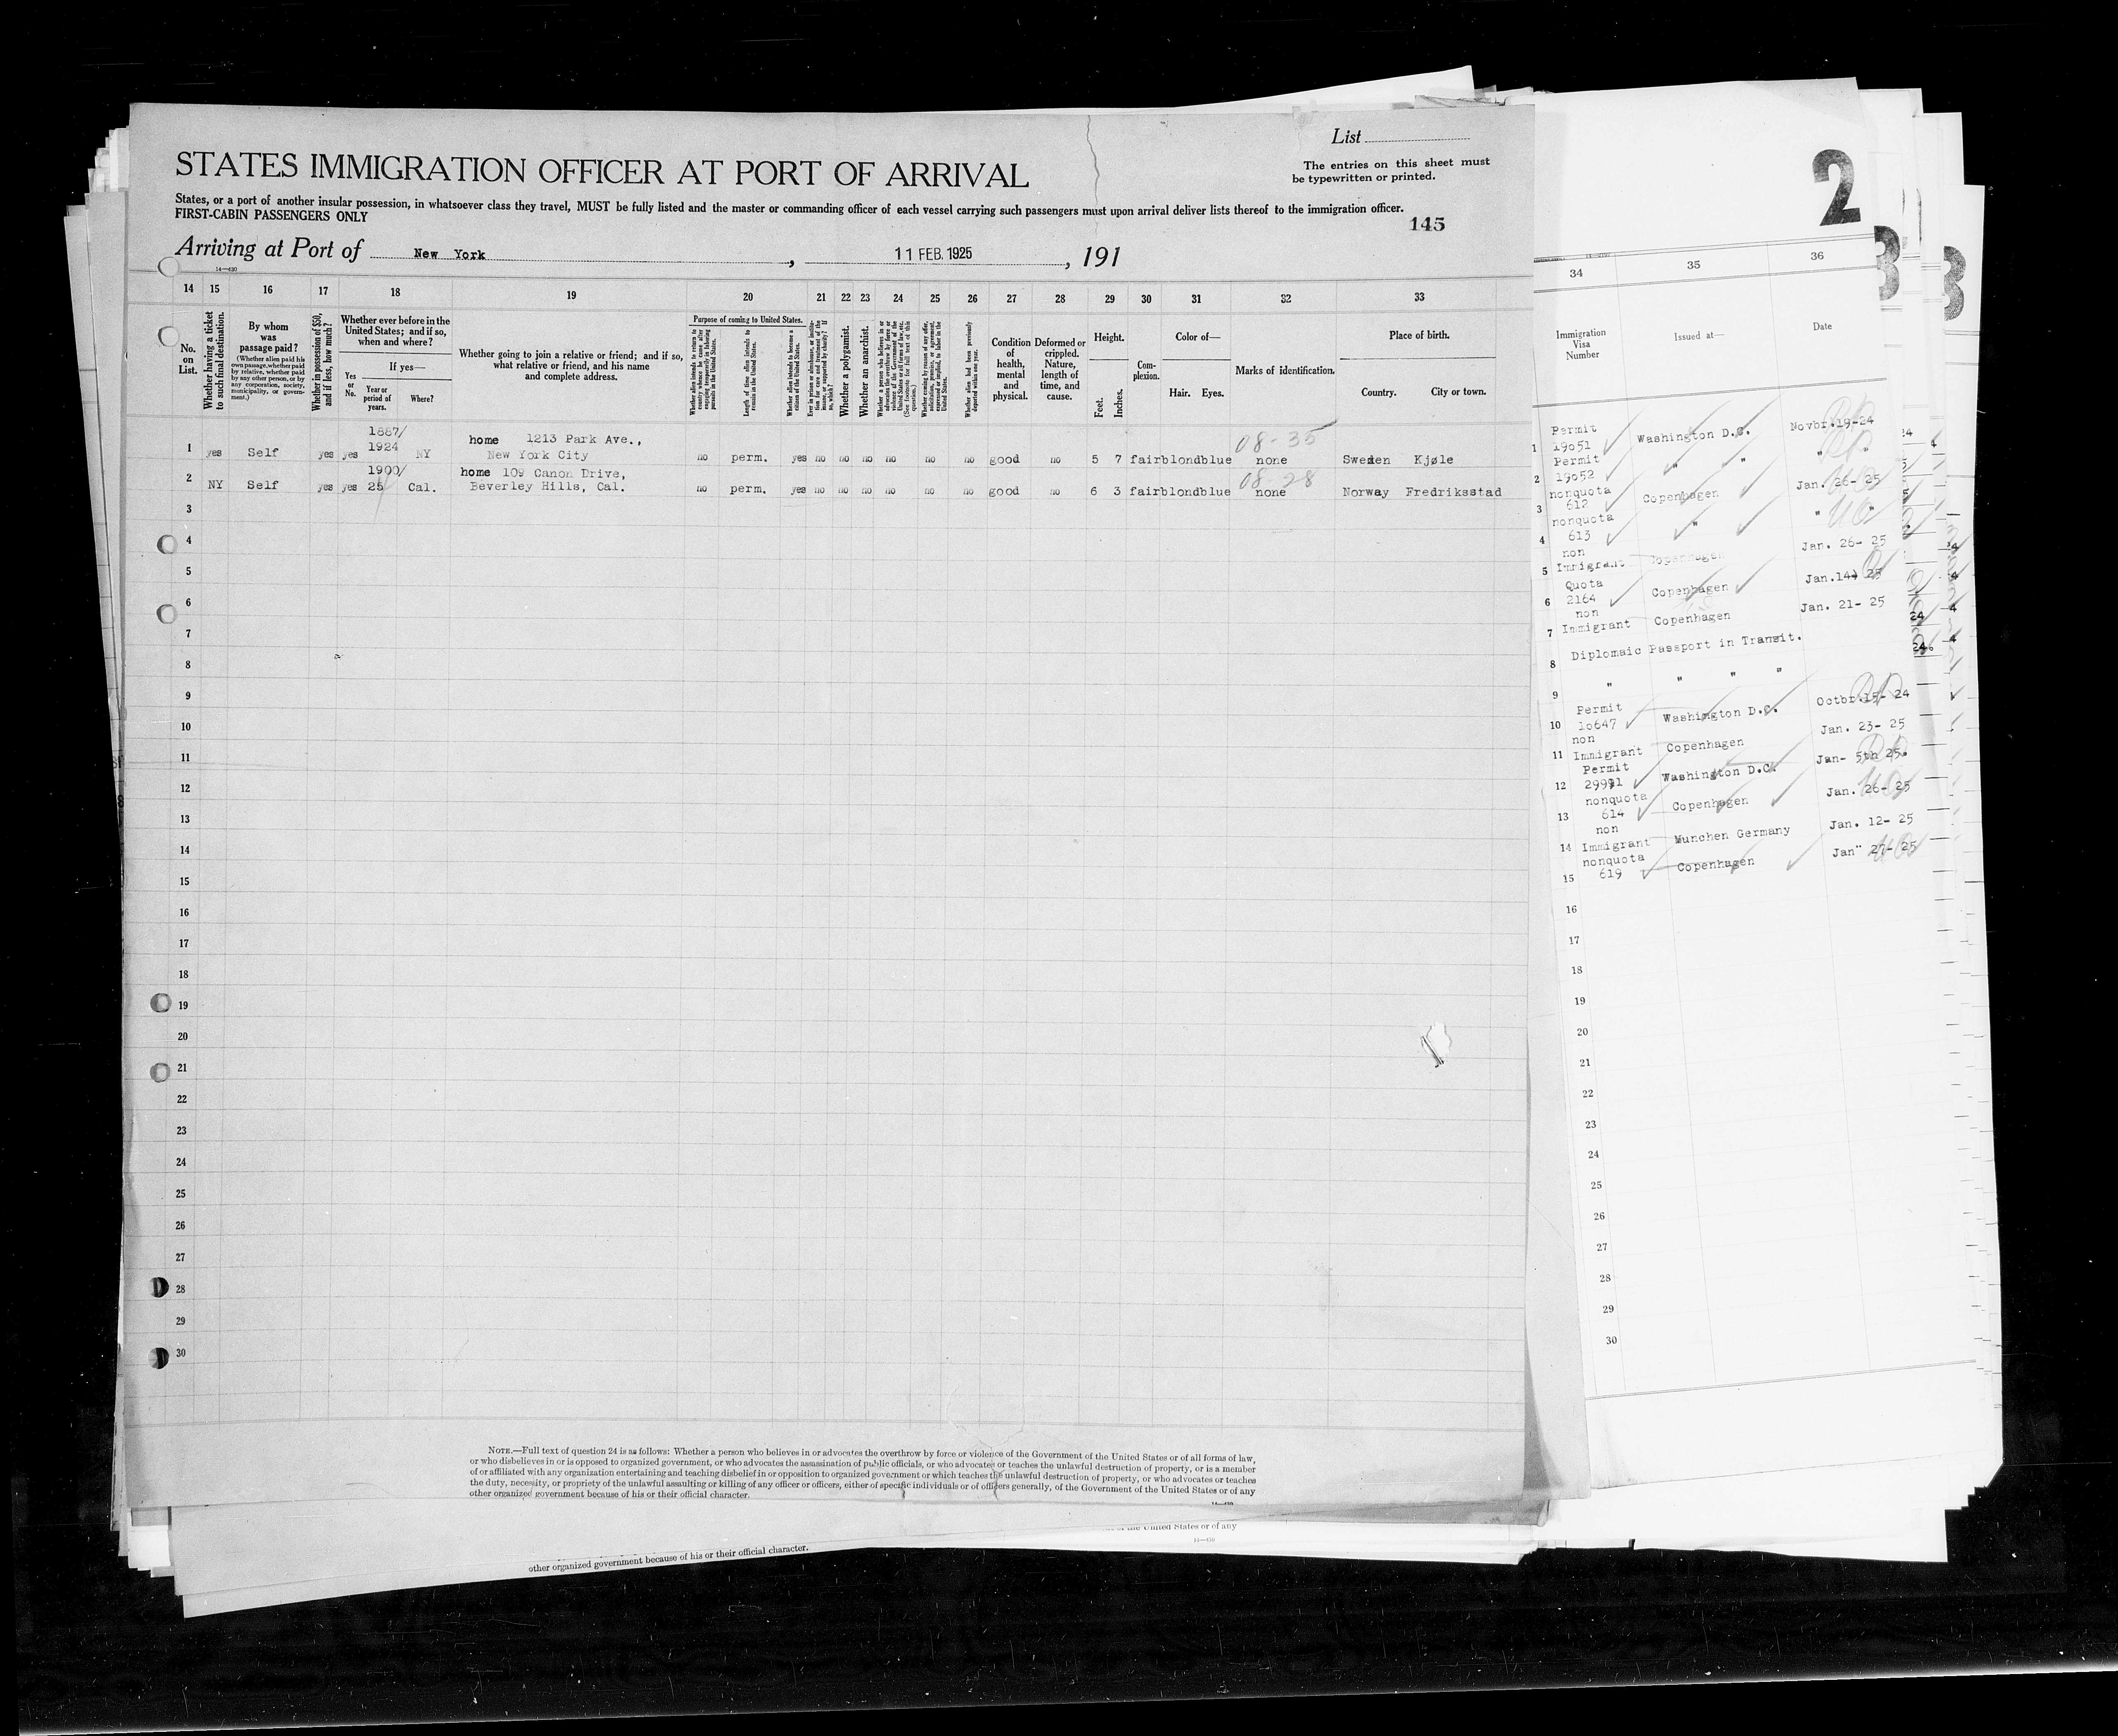 List
The entries on this sheet must
be typewritten or printed.
STATES IMMIGRATION OFFICER AT PORT OF ARRIVAL
States, or a port of another insular possession, in whatsoever class they travel, MUST be fully listed and the master or commanding officer of each vessel carrying such passengers must upon arrival deliver lists thereof to the immigration officer.
FIRST-CABIN PASSENGERS ONLY
145
Arriving at Port of New York, 11 FEB. 1925, 191
14—430
14 15 16 17 18 19 20 21 22 23 24 25 26 27 28 29 30 31 32 33
No. on List.
Whether having a ticket to such final destination.
By whom was passage paid?
(Whether alien paid his own passage, whether paid by relative, whether paid by any other person, or by any corporation, society, municipality, or government.)
Whether in possession of $50, and if less, how much?
Whether ever before in the United States; and if so, when and where?
If yes—
Yes or No.
Year or period of years.
Where?
Whether going to join a relative or friend; and if so, what relative or friend, and his name and complete address.
Purpose of coming to United States.
Whether alien intends to return to country whence he came after engaging temporarily in laboring pursuits in the United States.
Length of time alien intends to remain in the United States.
Whether alien intends to become a citizen of the United States.
Whether a polygamist.
Whether an anarchist.
Condition of health, mental and physical.
Deformed or crippled. Nature, length of time, and cause.
Height.
Feet. Inches.
Complexion.
Color of—
Hair. Eyes.
Marks of identification.
Place of birth.
Country. City or town.
08-35
1 yes Self yes yes 1887/ 1924 NY home 1213 Park Ave., New York City no perm. yes no no no no no no good no 5 7 fair blond blue none Sweden Kjøle
08-28
2 NY Self yes yes 1900/ 25 Cal. home 109 Canon Drive, Beverley Hills, Cal. no perm. yes no no no no no no good no 6 3 fair blond blue none Norway Fredriksstad
3
4
5
6
7
8
9
10
11
12
13
14
15
16
17
18
19
20
21
22
23
24
25
26
27
28
29
30
NOTE.—Full text of question 24 is as follows: Whether a person who believes in or advocates the overthrow by force or violence of the Government of the United States or of all forms of law,
or who disbelieves in or is opposed to organized government, or who advocates the assassination of public officials, or who advocates or teaches the unlawful destruction of property, or is a member
of or affiliated with any organization entertaining and teaching disbelief in or opposition to organized government or which teaches the unlawful destruction of property, or who advocates or teaches
the duty, necessity, or propriety of the unlawful assaulting or killing of any officer or officers, either of specific individuals or of officers generally, of the Government of the United States or of any
other organized government because of his or their official character.
14—430
of the United States or of any
14—430
other organized government because of his or their official character.
2
3
3
34 35 36
Immigration Visa Number
Issued at—
Date
1 Permit 19051 Washington D.C. Novbr.19-24
2 Permit 19052 " " " "
3 nonquota 612 Copenhagen Jan. 26- 25
4 nonquota 613 " " "
5 non Immigrant Copenhagen Jan. 26- 25
6 Quota 2164 Copenhagen Jan.14 25
7 non Immigrant Copenhagen Jan. 21- 25
8 Diplomaic Passport in Transit.
9 " " " "
10 Permit 10647 Washington D.C. Octbr.15- 24
11 non Immigrant Copenhagen Jan. 23- 25
12 Permit 29991 Washington D.C. Jan- 5th 25.
13 nonquota 614 Copenhagen Jan. 26- 25
14 non Immigrant Munchen Germany Jan. 12- 25
15 nonquota 619 Copenhagen Jan" 27- 25
16
17
18
19
20
21
22
23
24
25
26
27
28
29
30